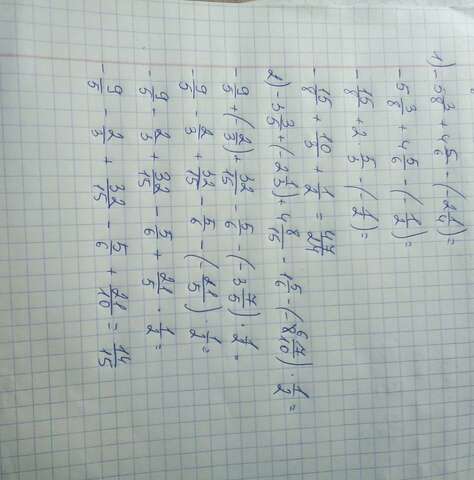 1) -5 3/8 + 4 5/6 - (-2 1/4)
-5 3/8 + 4 5/6 - (-1/2) =
-15/8 + 2 · 5/3 - (-1/2) =
-15/8 + 10/3 + 1/2 = 47/24
2) -3 3/5 + (-2 1/3) + 4 8/15 - 1 5/6 - (- ) · 1/2 =
-9/5 + (-2/3) + 32/15 - 5/6 - (-3 /5) · 1/2 =
-9/5 - 2/3 + 32/15 - 5/6 - (-21/5) · 1/2 =
-9/5 - 2/3 + 32/15 - 5/6 + 21/5 · 1/2 =
-9/5 - 2/3 + 32/15 - 5/6 + 21/10 = 14/15